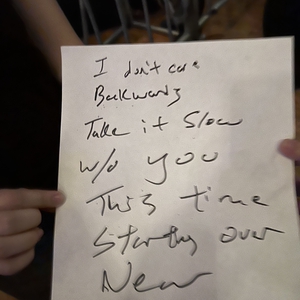 I don't care
Backwards
Take it Slow
w/o you
This time
Starting over
New